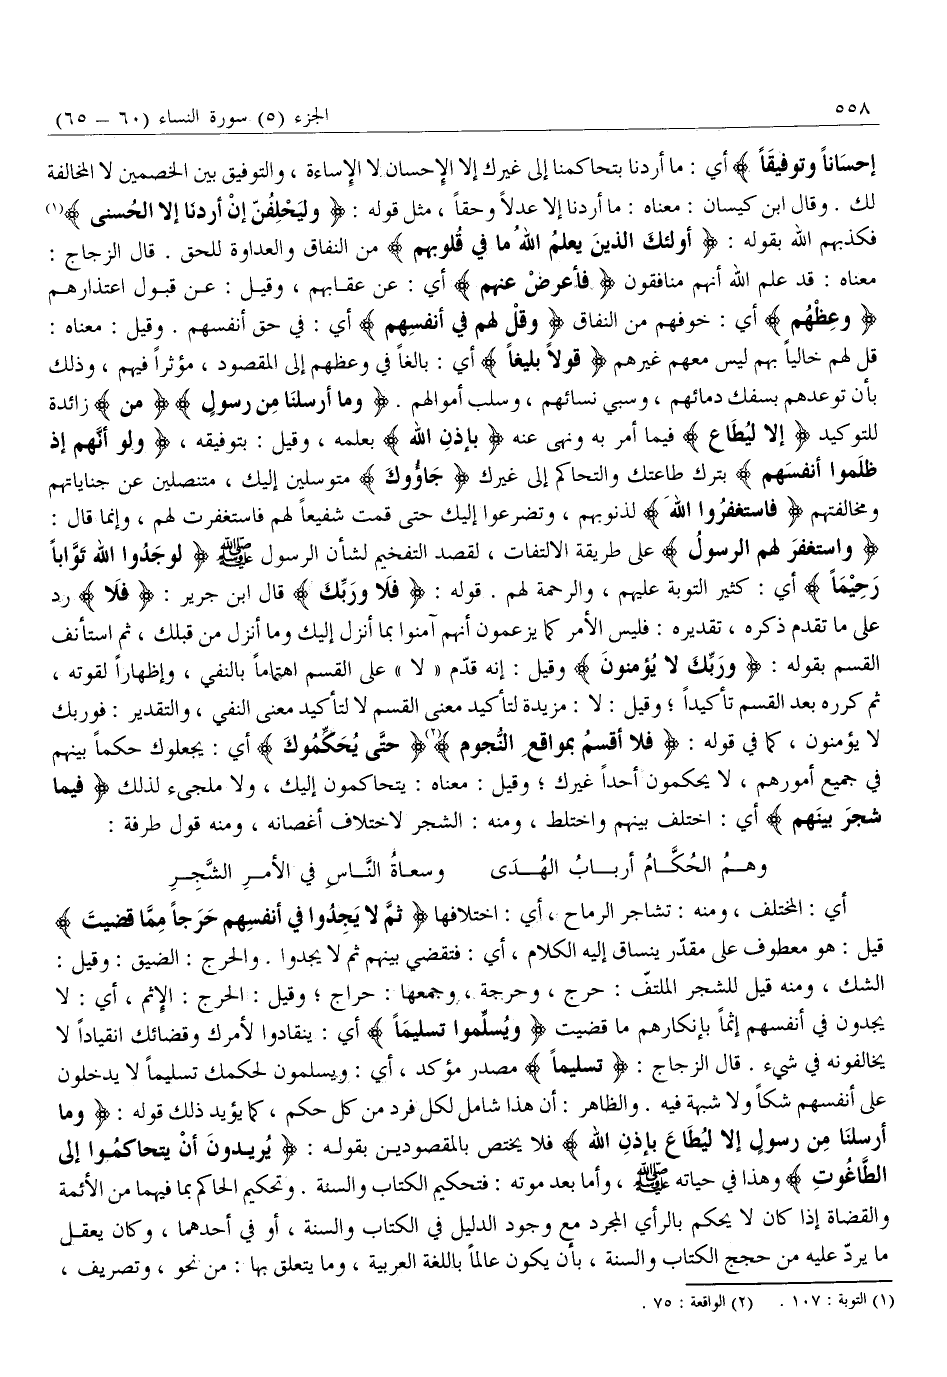 ٥٥٨
الجزء (٥) سورة النساء (٦٠ – ٦٥)
إحسَاناً وتوفيقَاً ﴾ أي : ما أردنا بتحاكمنا إلى غيرك إلا الإحسان لا الإساءة ، والتوفيق بين الخصمين لا المخالفة
لك . وقال ابن كيسان : معناه : ما أردنا إلا عدلاً وحقاً ، مثل قوله : ﴿ وليَحْلِفُنّ إنْ أردنَا إلا الحُسنى ﴾(١)
فكذبهم الله بقوله : ﴿ أولئكَ الذينَ يعلمُ اللهُ ما في قُلوبهم ﴾ من النفاق والعداوة للحق . قال الزجاج :
معناه : قد علم الله أنهم منافقون ﴿ فأعرضْ عنهم ﴾ أي : عن عقابهم ، وقيل : عن قبول اعتذارهم
﴿ وعِظْهُم ﴾ أي : خوفهم من النفاق ﴿ وقلْ لهم في أنفسِهم ﴾ أي : في حق أنفسهم . وقيل : معناه :
قل لهم خالياً بهم ليس معهم غيرهم ﴿ قولاً بليغاً ﴾ أي : بالغاً في وعظهم إلى المقصود ، مؤثراً فيهم ، وذلك
بأن توعدهم بسفك دمائهم ، وسبي نسائهم ، وسلب أموالهم . ﴿ وما أرسلنَا مِن رسولٍ ﴾ ﴿ من ﴾ زائدة
للتوكيد ﴿ إلا ليُطَاع ﴾ فيما أمر به ونهى عنه ﴿ بإذنِ الله ﴾ بعلمه ، وقيل : بتوفيقه ، ﴿ ولو أنَّهم إذ
ظلَموا أنفسَهم ﴾ بترك طاعتك والتحاكم إلى غيرك ﴿ جَاؤُوكَ ﴾ متوسلين إليك ، متنصلين عن جناياتهم
ومخالفتهم ﴿ فاستغفرُوا اللهَ ﴾ لذنوبهم ، وتضرعوا إليك حتى قمت شفيعاً لهم فاستغفرت لهم ، وإنما قال :
﴿ واستغفرَ لهم الرسولُ ﴾ على طريقة الالتفات ، لقصد التفخيم لشأن الرسول ﷺ ﴿ لوجَدُوا الله تَوَّاباً
رَحِيْمَاً ﴾ أي : كثير التوبة عليهم ، والرحمة لهم . قوله : ﴿ فلَا ورَبِّكَ ﴾ قال ابن جرير : ﴿ فلَا ﴾ رد
على ما تقدم ذكره ، تقديره : فليس الأمر كما يزعمون أنهم آمنوا بما أنزل إليك وما أنزل من قبلك ، ثم استأنف
القسم بقوله : ﴿ ورَبِّكَ لا يُؤمنونَ ﴾ وقيل : إنه قدّم « لا » على القسم اهتماماً بالنفي ، وإظهاراً لقوته ،
ثم كرره بعد القسم تأكيداً ؛ وقيل : لا : مزيدة لتأكيد معنى القسم لا لتأكيد معنى النفي ، والتقدير : فوربك
لا يؤمنون ، كما في قوله : ﴿ فلا أقسمُ بمواقعِ النُّجوم ﴾(٢)﴿ حتَّى يُحَكِّمُوكَ ﴾ أي : يجعلوك حكماً بينهم
في جميع أمورهم ، لا يحكمون أحداً غيرك ؛ وقيل : معناه : يتحاكمون إليك ، ولا ملجىء لذلك ﴿ فيما
شجرَ بينَهم ﴾ أي : اختلف بينهم واختلط ، ومنه : الشجر لاختلاف أغصانه ، ومنه قول طرفة :
وهــم الحُكَّــامُ أربــابُ الهُــدَى وسعاةُ النَّاسِ في الأمرِ الشَّجِرِ
أي : المختلف ، ومنه : تشاجر الرماح ، أي : اختلافها ﴿ ثمَّ لا يَجِدُوا في أنفسِهم حَرَجاً مِمَّا قضيتَ ﴾
قيل : هو معطوف على مقدّر ينساق إليه الكلام ، أي : فتقضي بينهم ثم لا يجدوا . والحرج : الضيق : وقيل :
الشك ، ومنه قيل للشجر الملتفّ : حرج ، وحرجة ، وجمعها : حراج ؛ وقيل : الحرج : الإثم ، أي : لا
يجدون في أنفسهم إثماً بإنكارهم ما قضيت ﴿ ويُسلِّموا تسليمَاً ﴾ أي : ينقادوا لأمرك وقضائك انقياداً لا
يخالفونه في شيء . قال الزجاج : ﴿ تسليماً ﴾ مصدر مؤكد ، أي : ويسلمون لحكمك تسليماً لا يدخلون
على أنفسهم شكاً ولا شبهة فيه . والظاهر : أن هذا شامل لكل فرد من كل حكم ، كما يؤيد ذلك قوله : ﴿ وما
أرسلنَا مِن رسولٍ إلا ليُطَاعَ بإذنِ الله ﴾ فلا يختص بالمقصودين بقوله : ﴿ يُريدونَ أنْ يتحاكمُوا إلى
الطَّاغُوتِ ﴾ وهذا في حياته ﷺ ، وأما بعد موته : فتحكيم الكتاب والسنة . وتحكيم الحاكم بما فيهما من الأئمة
والقضاة إذا كان لا يحكم بالرأي المجرد مع وجود الدليل في الكتاب والسنة ، أو في أحدهما ، وكان يعقل
ما يردّ عليه من حجج الكتاب والسنة ، بأن يكون عالماً باللغة العربية ، وما يتعلق بها : من نحو ، وتصريف ،
(١) التوبة : ١٠٧ . (٢) الواقعة : ٧٥ .